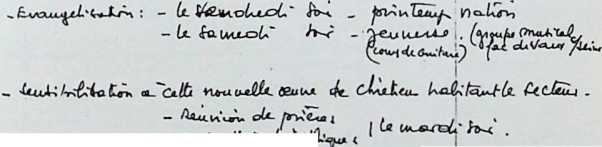 - Evangélisation : - le vendredi soir - printemps nation
- le samedi soir - jeunesse. (groupe musical
(cours de guitare) fac de Vaux/Seine
- Sensibilisation à cette nouvelle œuvre de chrétien habitant le secteur.
- Réunion de prières
le mardi soir.